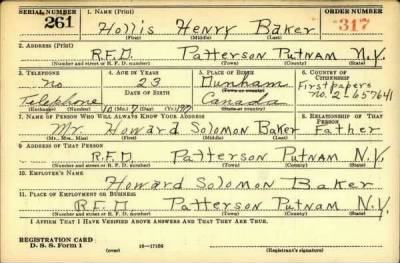 SERIAL NUMBER 1. NAME (Print) ORDER NUMBER
261 Hollis Henry Baker 317
(First) (Middle) (Last)
2. ADDRESS (Print)
R.F.D. Patterson Putnam N.Y.
(Number and street or R. F. D. number) (Town) (County) (State)
3. TELEPHONE 4. AGE IN YEARS 5. PLACE OF BIRTH 6. COUNTRY OF CITIZENSHIP
no 23 Durham First papers
DATE OF BIRTH (Town or county) no. 2-657641
Telephone 10 Canada
(Exchange) (Number) (Mo.) (Day) (Yr.) (State or country)
7. NAME OF PERSON WHO WILL ALWAYS KNOW YOUR ADDRESS 8. RELATIONSHIP OF THAT PERSON
Mr. Howard Solomon Baker Father
(Mr., Mrs., Miss) (First) (Middle) (Last)
9. ADDRESS OF THAT PERSON
R.F.D. Patterson Putnam N.Y.
(Number and street or R. F. D. number) (Town) (County) (State)
10. EMPLOYER'S NAME
Howard Solomon Baker
11. PLACE OF EMPLOYMENT OR BUSINESS
R.F.D. Patterson Putnam N.Y.
(Number and street or R. F. D. number) (Town) (County) (State)
I AFFIRM THAT I HAVE VERIFIED ABOVE ANSWERS AND THAT THEY ARE TRUE.
REGISTRATION CARD
D. S. S. Form 1 (over) 16-17105 (Registrant's signature)